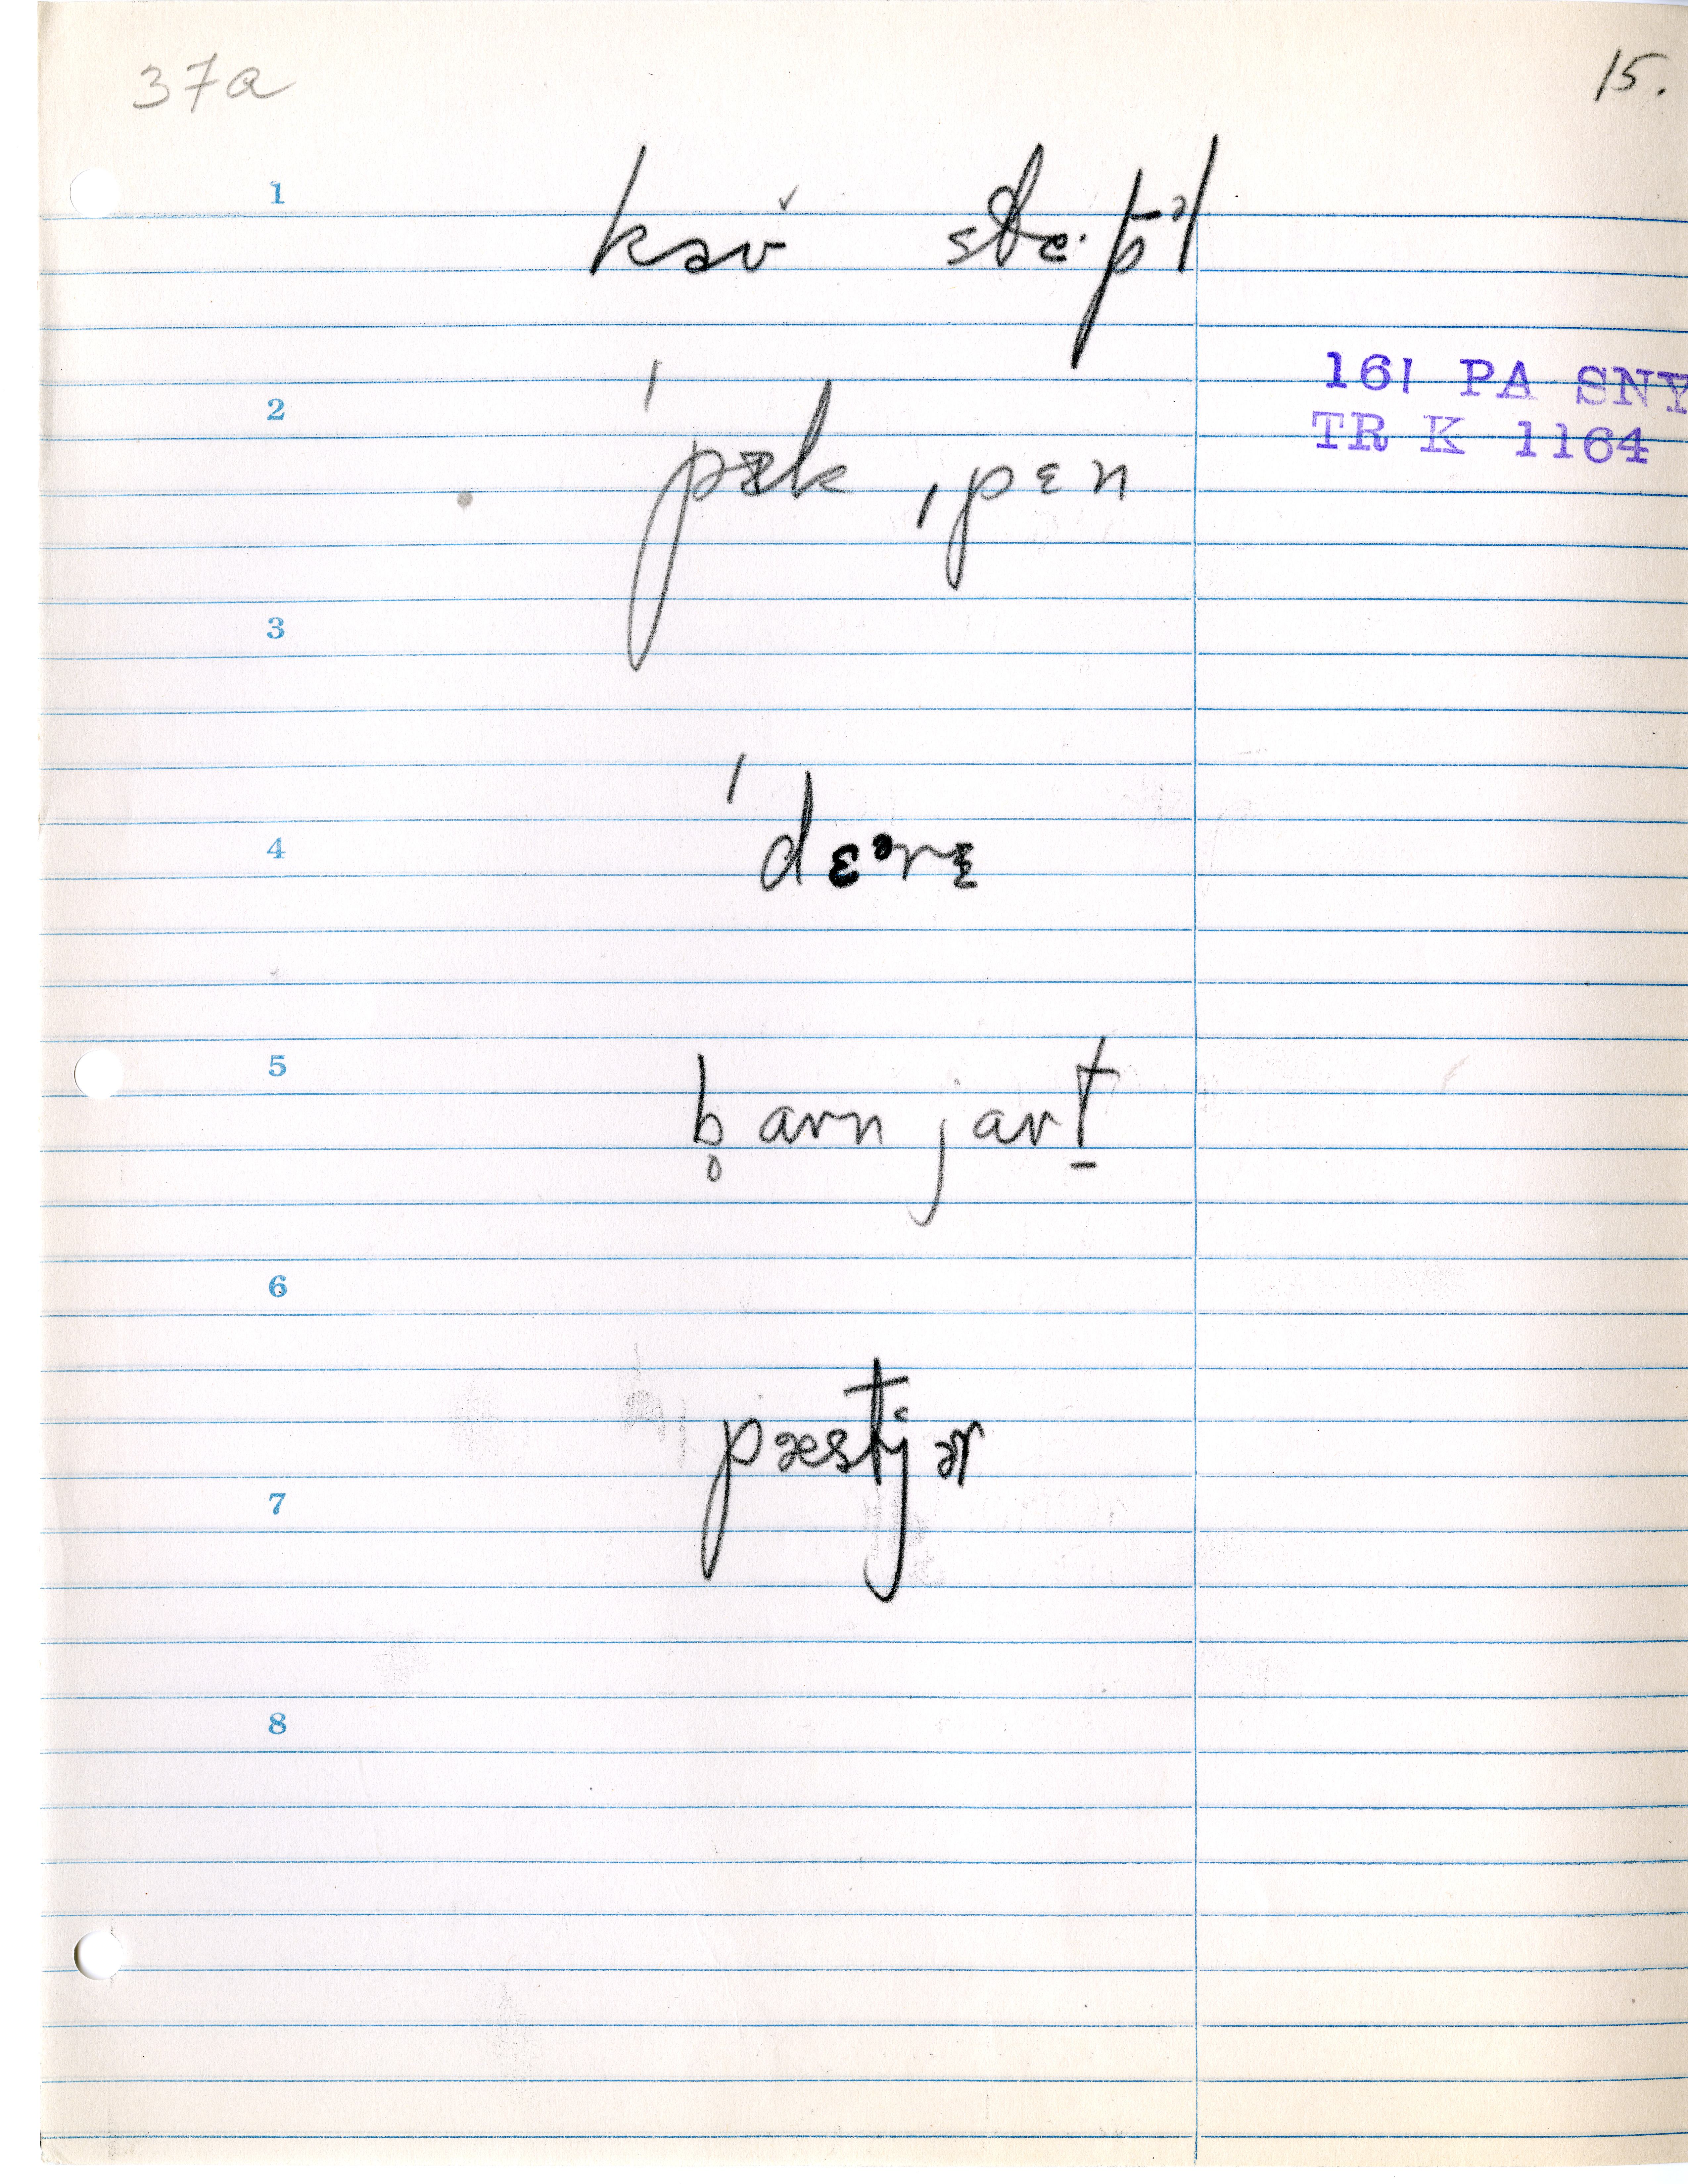 37a
15.
1
kəv̌ stæ·pəl
161 PA SNY
TR K 1164
2
ˈpɪk ˌpɛn
3
4
ˈdɛᵊrɪ
5
b̥arnjart̠
6
pæstjɚ
7
8